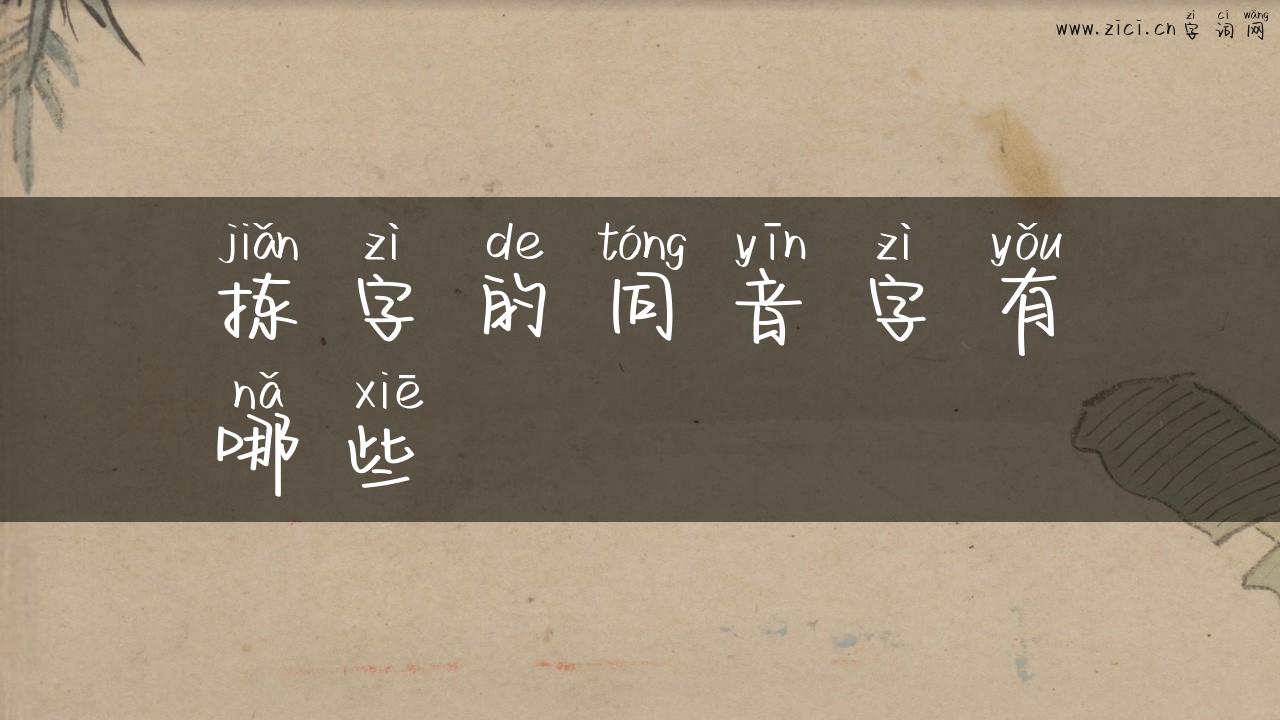 zì cí wǎng
www.zici.cn 字 词 网
jiǎn zì de tóng yīn zì yǒu
拣 字 的 同 音 字 有
nǎ xiē
哪 些